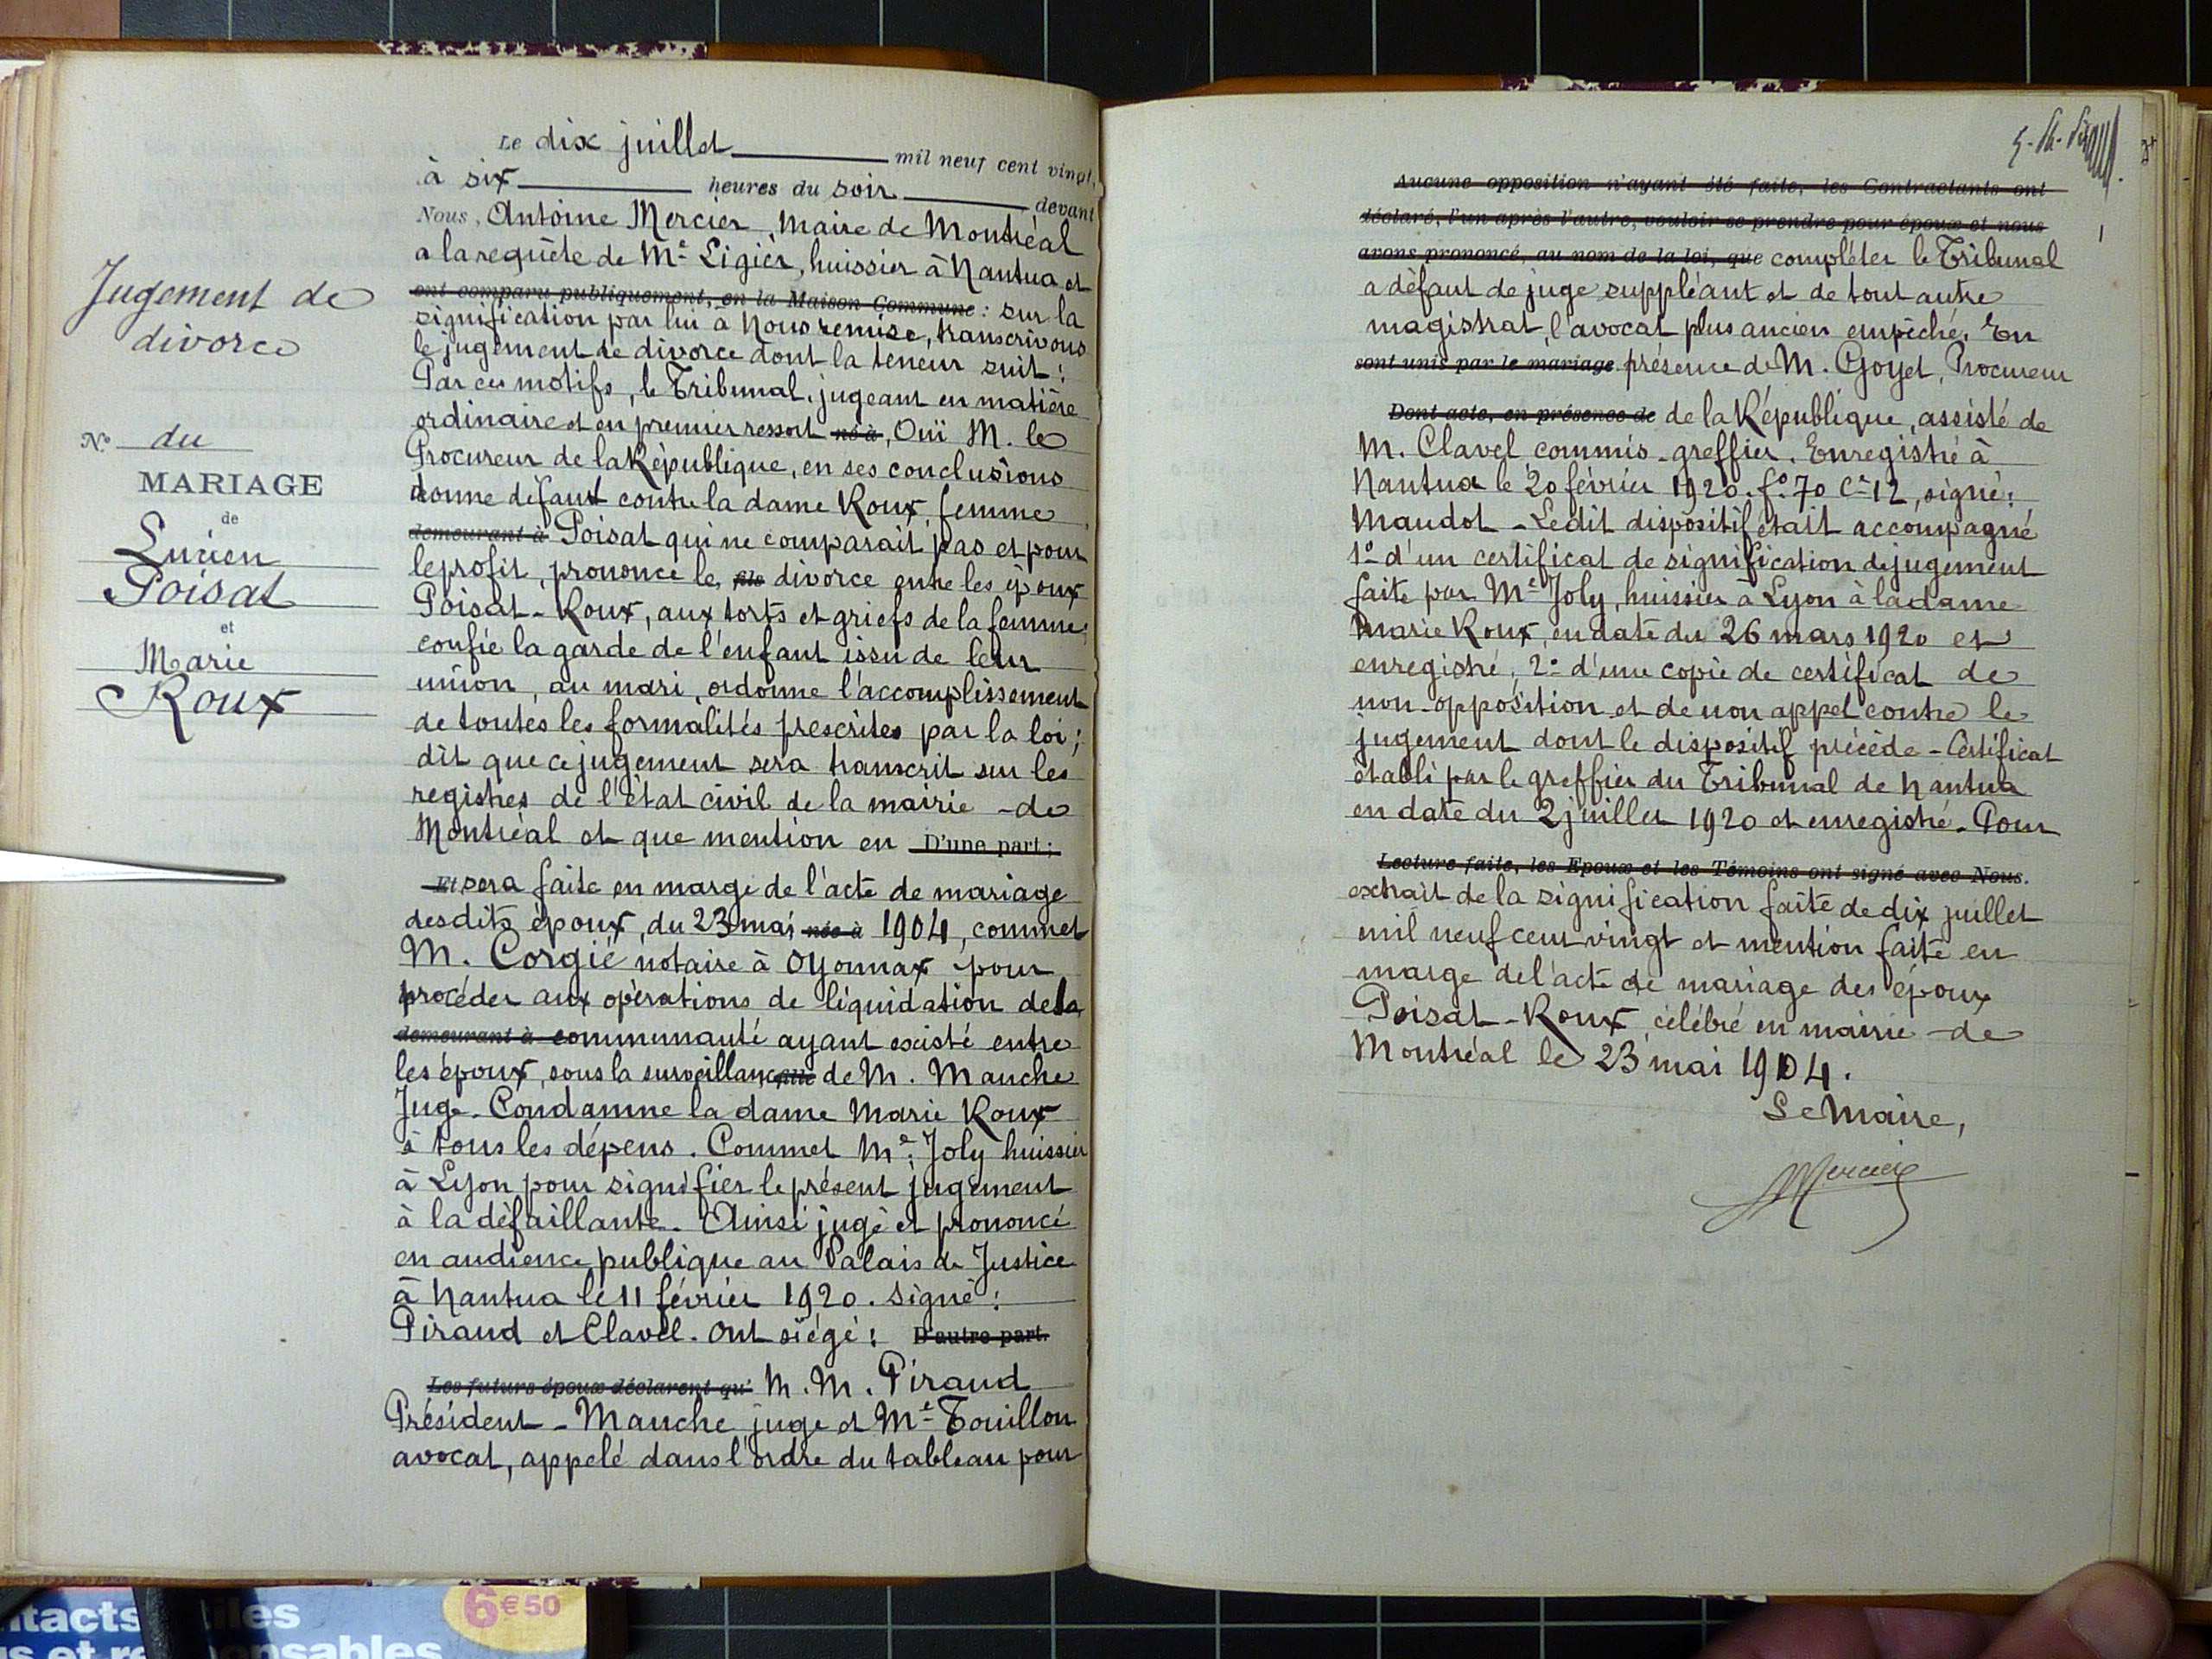 Jugement de
divorce
N° du
MARIAGE
de
Lucien
Poisat
et
Marie
Roux
Le dix juillet mil neuf cent vingt,
à six heures du soir devant
Nous, Antoine Mercier, Maire de Montréal
a la requête de Me Ligier, huissier à Nantua et
ont comparu publiquement, en la Maison Commune : sur la
signification par lui à Nous remise, transcrivons
le jugement de divorce dont la teneur suit :
Par ces motifs, le Tribunal, jugeant en matière
ordinaire et en premier ressort né à, Ouï M. le
Procureur de la République, en ses conclusions
donne défaut contre la dame Roux, femme
demourant à Poisat qui ne comparait pas et pour
le profit, prononce le fils divorce entre les époux
Poisat-Roux, aux torts et griefs de la femme;
confie la garde de l'enfant issu de leur
union, au mari, ordonne l'accomplissement
de toutes les formalités prescrites par la loi;
dit que ce jugement sera transcrit sur les
registres de l'état civil de la mairie - de
Montréal et que mention en D'une part ;
Et sera faite en marge de l'acte de mariage
desdits époux, du 23 mai née à 1904, commet
M. Corgié notaire à Oyonnax pour
procéder aux opérations de liquidation de la
demourant à communauté ayant existé entre
les époux, sous la surveillance fille de M. Manche
Juge. Condamne la dame Marie Roux
à tous les dépens. Commet Me Joly huissier
à Lyon pour signifier le présent jugement
à la défaillante. Ainsi jugé et prononcé
en audience publique au Palais de Justice
à Nantua le 11 février 1920. Signé :
Piraud et Clavel. Ont siégé : D'autre part.
Les futurs époux déclarent qu' M.M. Piraud
Président - Manche juge et Me Touillon
avocat, appelé dans l'ordre du tableau pour
Aucune opposition n'ayant été faite, les Contractants ont
déclaré, l'un après l'autre, vouloir se prendre pour époux et nous
avons prononcé, au nom de la loi, que compléter le Tribunal
a défaut de juge suppléant et de tout autre
magistrat, l'avocat plus ancien empêché. En
sont unis par le mariage présence de M. Goyet, Procureur
Dont acte, en présence de de la République, assisté de
M. Clavel commis-greffier. Enregistré à
Nantua le 20 février 1920. fo. 70 Ce 12, signé :
Maudot - Ledit dispositif était accompagné
1° d'un certificat de signification de jugement
faite par Me Joly, huissier à Lyon à la dame
Marie Roux, en date du 26 mars 1920 et
enregistré, 2° d'une copie de certificat de
non-opposition et de non appel contre le
jugement dont le dispositif précède - Certificat
établi par le greffier du Tribunal de Nantua
en date du 2 juillet 1920 et enregistré. Pour
Lecture faite, les Epoux et les Témoins ont signé avec Nous.
extrait de la signification faite de dix juillet
mil neuf cent vingt et mention faite en
marge de l'acte de mariage des époux
Poisat-Roux, célébré en mairie - de
Montréal le 23 mai 1904.
Le Maire,
Mercier
6€50